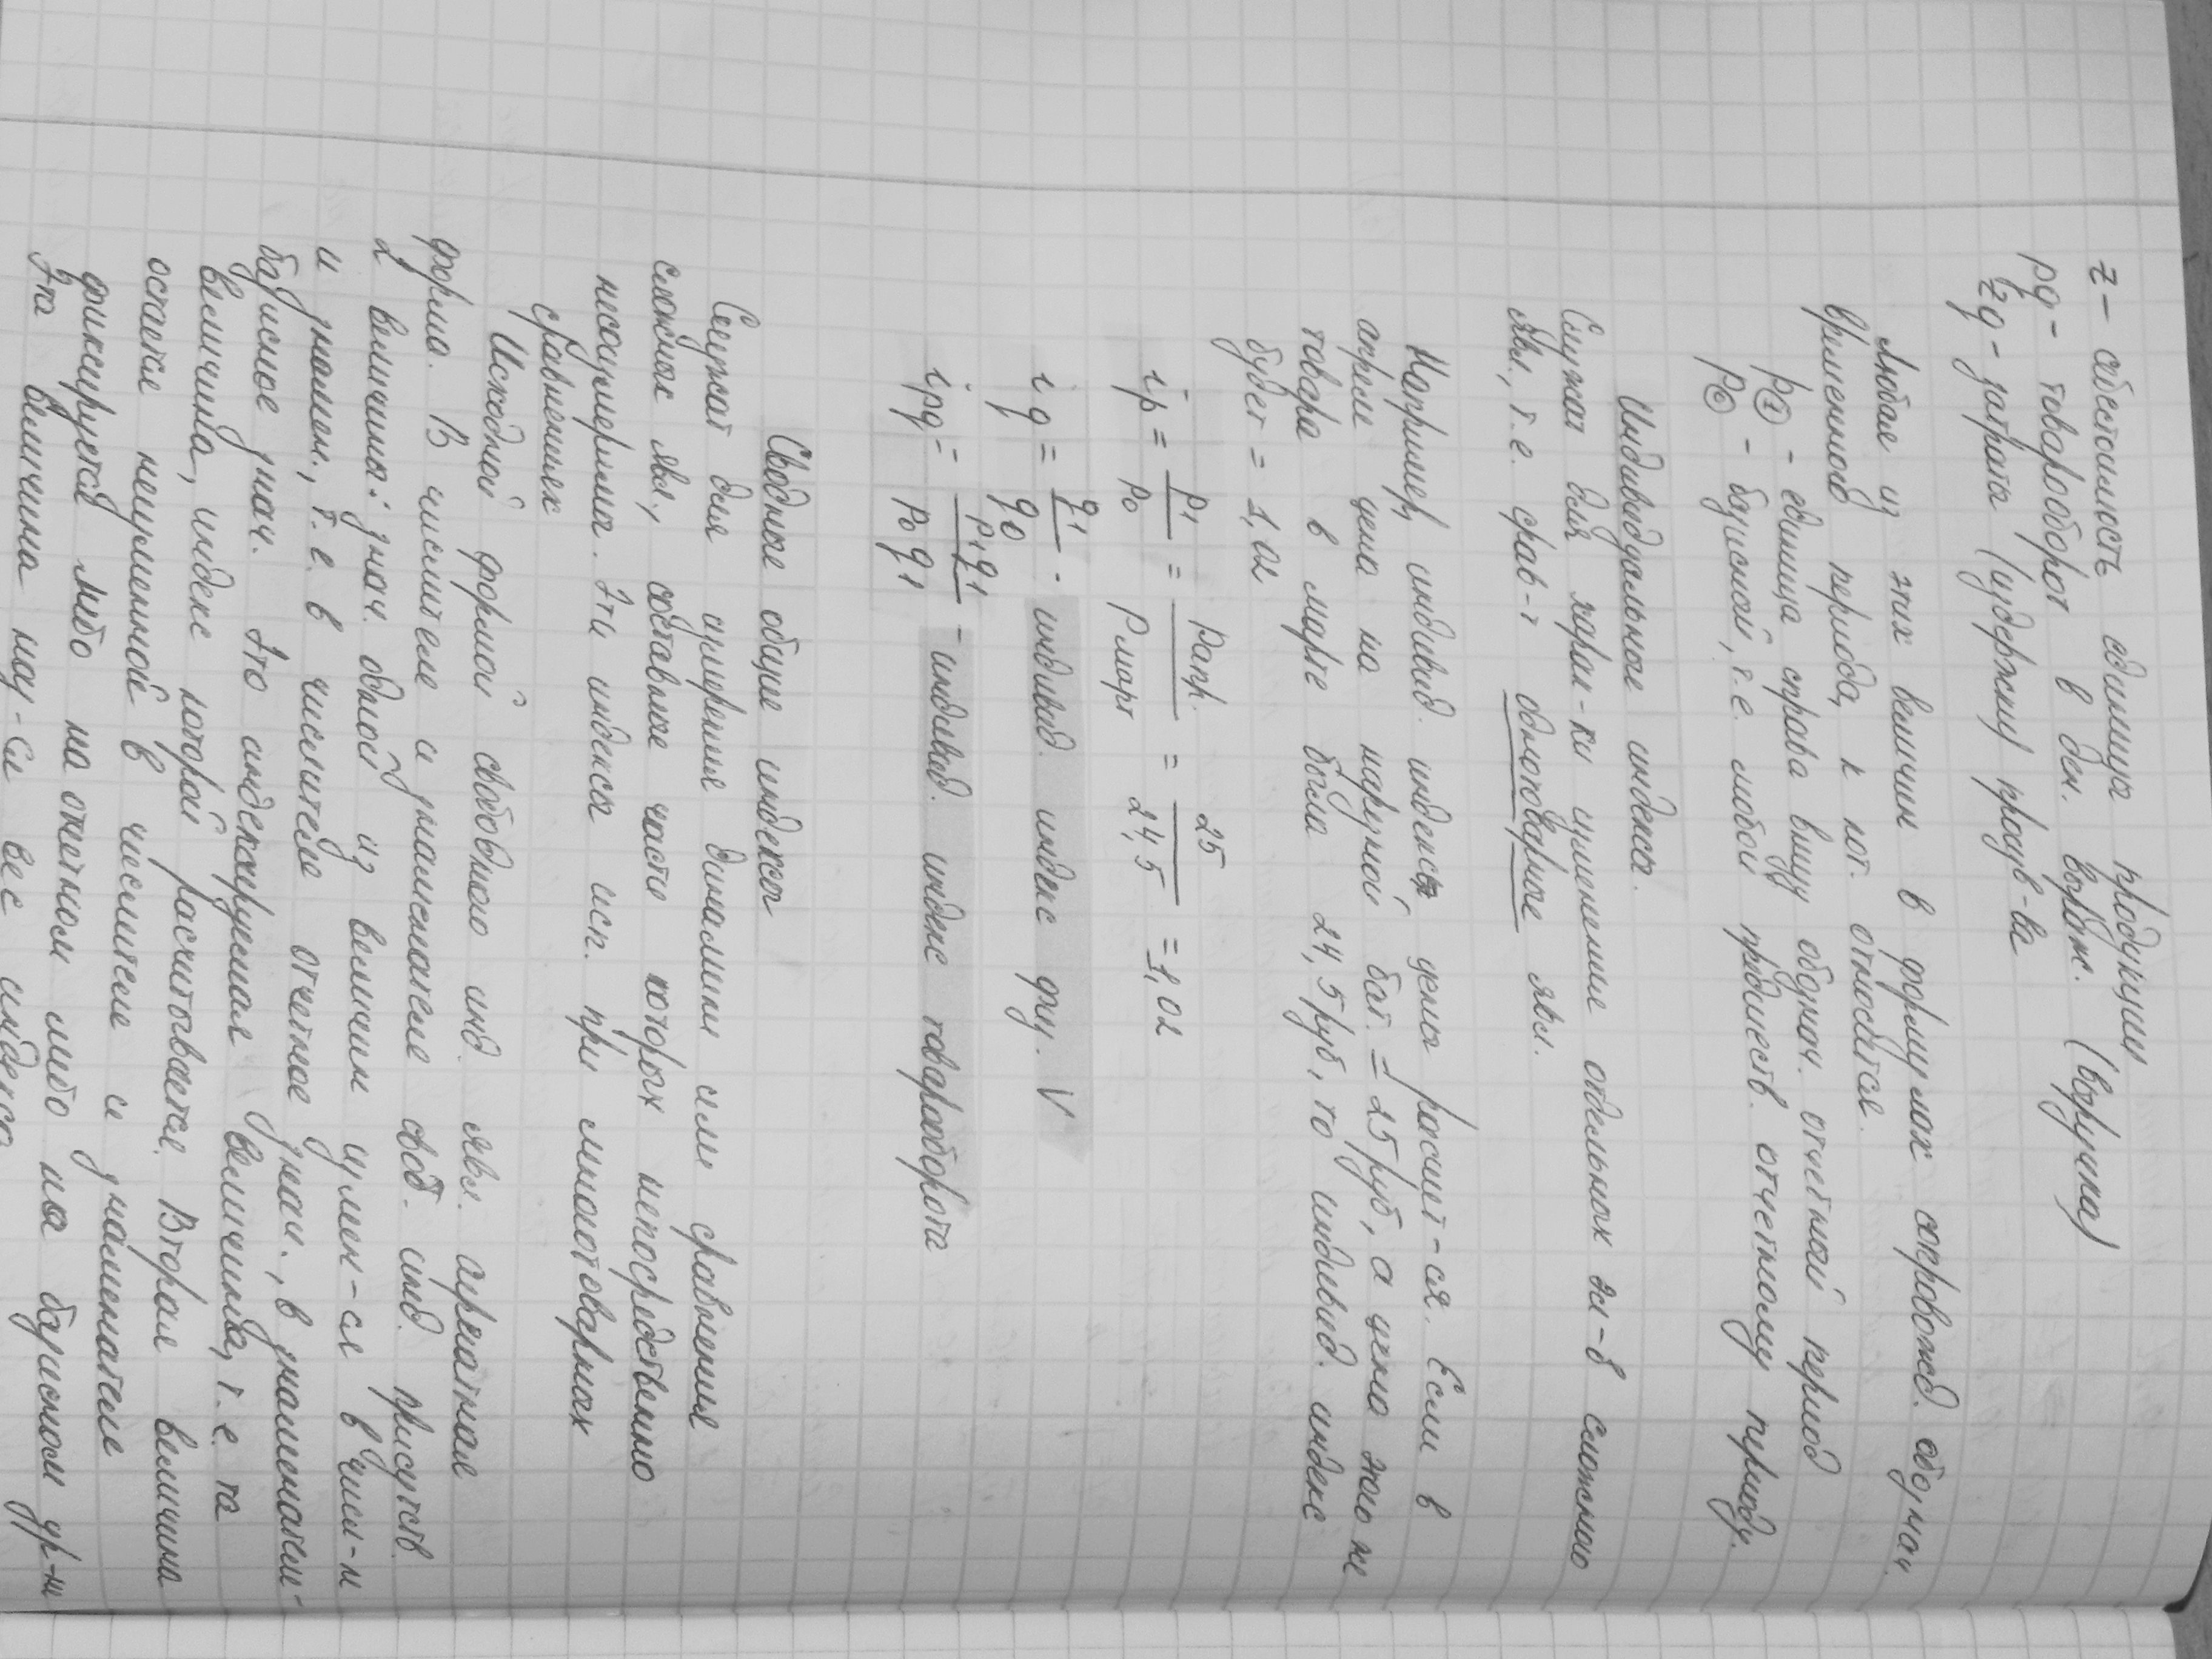 z – себестоимость единицы продукции
pq – товарооборот в ден. выраж. (выручка)
zq – затраты (издержки) произв-ва
Любая из этих величин в формулах сопровожд. обознач.
временного периода, к кот. относится.
p① – единица справа внизу обознач. отчетный период
p⓪ – базисной, т.е. любой предшеств. отчетному периоду.
Индивидуальные индексы.
Служат для харак-ки изменение отдельных эл-в сложного
явл., т.е. срав-т однотоварные явл.
Например, индивид. индекс цены расчит-ся. Если в
апреле цена на нарезной бат. = 25 руб, а цена того же
товара в марте была 24,5 руб, то индивид. индекс
будет = 1,02
ip = p1/p0 = Pапр./Pмарт = 25/24,5 = 1,02
iq = q1/q0 - индивид. индекс физ. V
ipq = p1q1/p0q1 - индивид. индекс товарооборота
Сводные общие индексы
Служат для измерение динамики или сравнения
сложных явл., составные части которых непосредственно
несоизмеримы. Эти индексы исп. при многотоварных
сравнениях
Исходной формой сводного инд. явл. агрегатная
форма. В числителе и знаменателе свод. инд. присутств.
2 величины: знач. одной из величин измен-ся в числ-м
и знамен., т.е. в числителе отчетное знач., в знаменателе-
базисное знач. Это индексируемая величина, т.е. та
величина, индекс которой расчитывается. Вторая величина
остается неизменной в числителе и знаменателе
фиксируется либо на отчетном либо на базисном ур-не
Эта величина наз-ся вес индекса